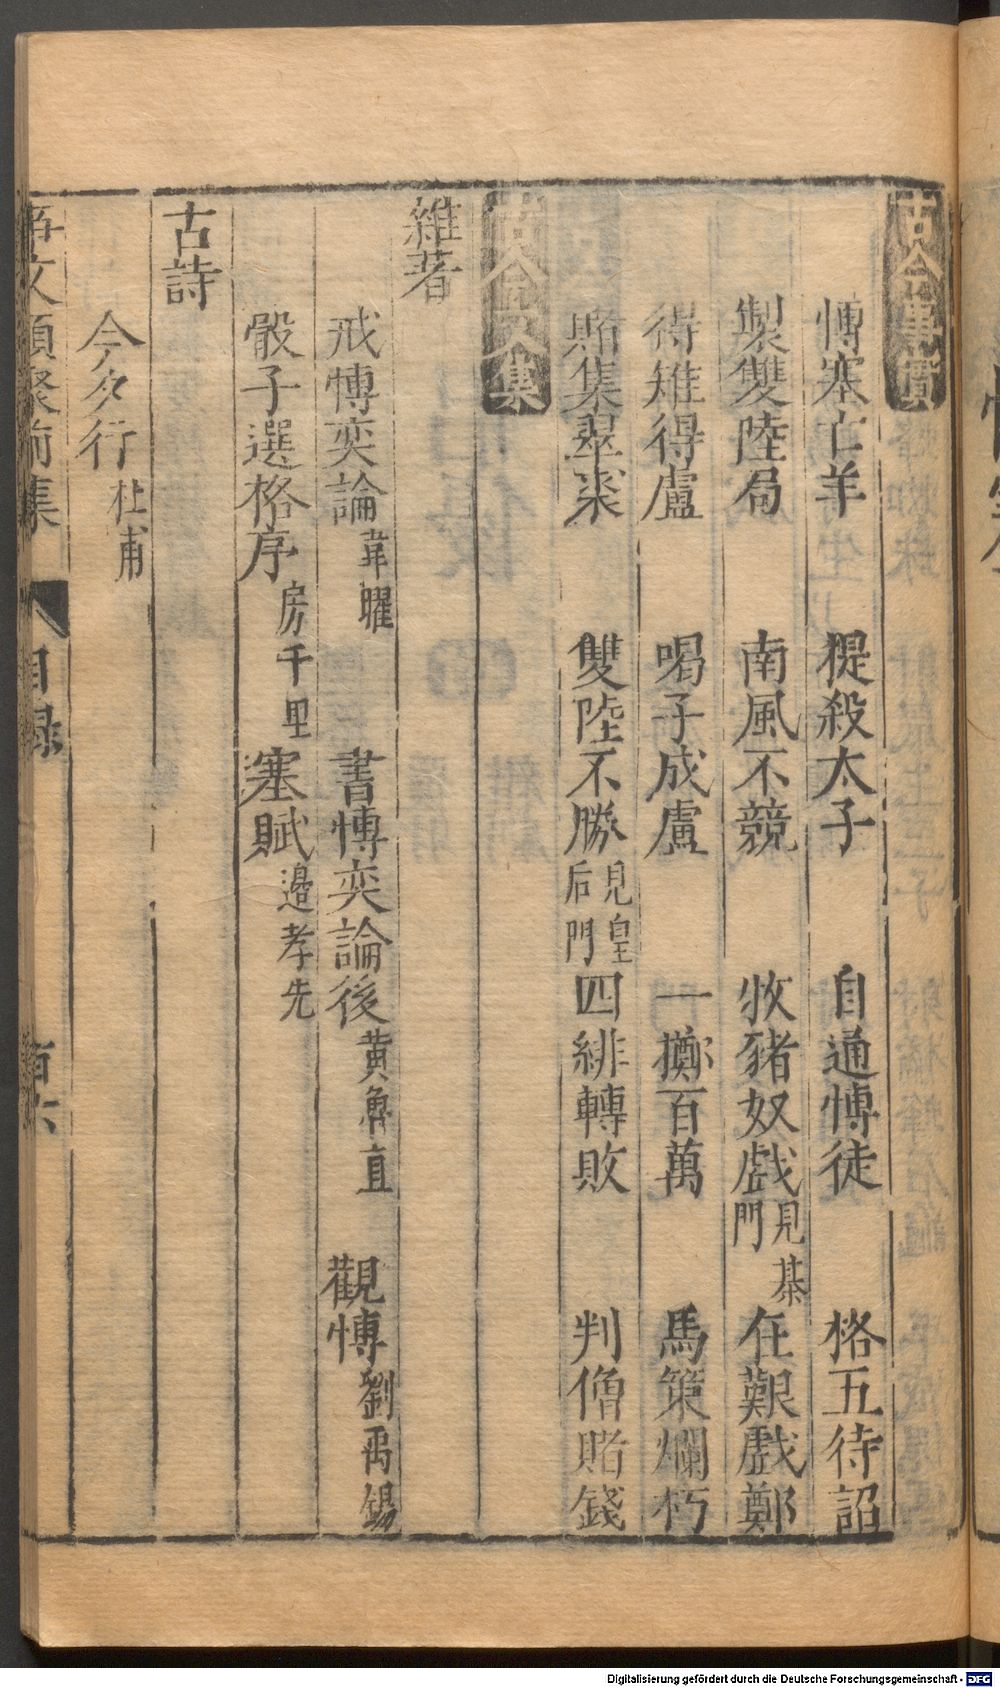 古今事實
愽塞亡羊 提殺太子 自通愽徒 格五待詔
製雙陸局 南風不競 牧豬奴戲見棊門 任艱戲鄭
得雉得盧 喝子成盧 一擲百萬 馬策爛朽
賭集翠裘 雙陸不勝見皇后門 四緋轉敗 判僧賭錢
古今文集
雜著
戒愽奕論韋曜 書愽奕論後黄魯直 觀愽劉禹錫
骰子選格序房千里 塞賦邉孝先
古詩
今夕行杜甫
事文類聚前集 目録 百六
Digitalisierung gefördert durch die Deutsche Forschungsgemeinschaft - DFG